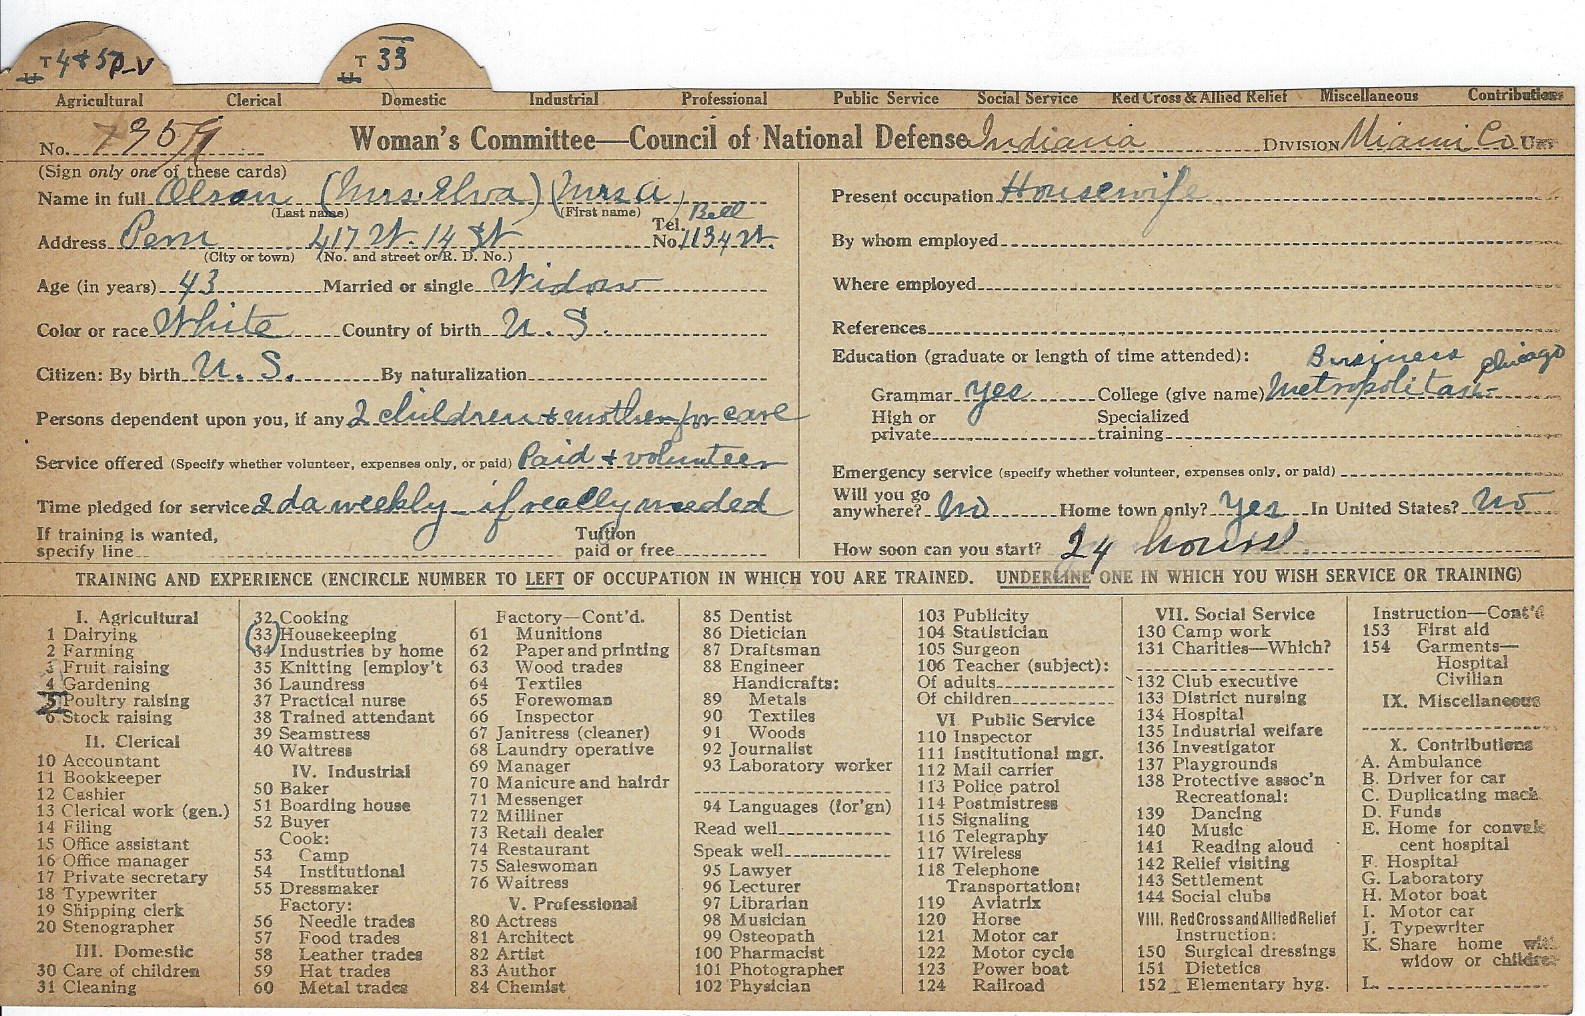 T 4 + 5 P-V T 33
U U
Agricultural Clerical Domestic Industrial Professional Public Service Social Service Red Cross & Allied Relief Miscellaneous Contributions
No. 7957 Woman's Committee—Council of National Defense Indiana DIVISION Miami Co UNIT
(Sign only one of these cards)
Name in full Olson (Mrs. Elva) (Mrs A)
(Last name) (First name)
Address Peru 417 W. 14 St Tel. No. Bell 1134 W.
(City or town) (No. and street or R. D. No.)
Age (in years) 43 Married or single Widow
Color or race White Country of birth U. S.
Citizen: By birth U. S. By naturalization
Persons dependent upon you, if any 2 children + mother for care
Service offered (Specify whether volunteer, expenses only, or paid) Paid + volunteer
Time pledged for service 2 da weekly – if really needed
If training is wanted, Tuition
specify line paid or free
Present occupation Housewife
By whom employed
Where employed
References
Education (graduate or length of time attended): Business Chicago
Grammar Yes College (give name) Metropolitan
High or Specialized
private training
Emergency service (specify whether volunteer, expenses only, or paid)
Will you go
anywhere? No Home town only? Yes In United States? No
How soon can you start? 24 hours
TRAINING AND EXPERIENCE (ENCIRCLE NUMBER TO LEFT OF OCCUPATION IN WHICH YOU ARE TRAINED. UNDERLINE ONE IN WHICH YOU WISH SERVICE OR TRAINING)
I. Agricultural
1 Dairying
2 Farming
3 Fruit raising
4 Gardening
5 Poultry raising
6 Stock raising
II. Clerical
10 Accountant
11 Bookkeeper
12 Cashier
13 Clerical work (gen.)
14 Filing
15 Office assistant
16 Office manager
17 Private secretary
18 Typewriter
19 Shipping clerk
20 Stenographer
III. Domestic
30 Care of children
31 Cleaning
32 Cooking
33 Housekeeping
34 Industries by home
35 Knitting [employ't
36 Laundress
37 Practical nurse
38 Trained attendant
39 Seamstress
40 Waitress
IV. Industrial
50 Baker
51 Boarding house
52 Buyer
Cook:
53 Camp
54 Institutional
55 Dressmaker
Factory:
56 Needle trades
57 Food trades
58 Leather trades
59 Hat trades
60 Metal trades
Factory—Cont'd.
61 Munitions
62 Paper and printing
63 Wood trades
64 Textiles
65 Forewoman
66 Inspector
67 Janitress (cleaner)
68 Laundry operative
69 Manager
70 Manicure and hairdr
71 Messenger
72 Milliner
73 Retail dealer
74 Restaurant
75 Saleswoman
76 Waitress
V. Professional
80 Actress
81 Architect
82 Artist
83 Author
84 Chemist
85 Dentist
86 Dietician
87 Draftsman
88 Engineer
Handicrafts:
89 Metals
90 Textiles
91 Woods
92 Journalist
93 Laboratory worker
94 Languages (for'gn)
Read well
Speak well
95 Lawyer
96 Lecturer
97 Librarian
98 Musician
99 Osteopath
100 Pharmacist
101 Photographer
102 Physician
103 Publicity
104 Statistician
105 Surgeon
106 Teacher (subject):
Of adults
Of children
VI Public Service
110 Inspector
111 Institutional mgr.
112 Mail carrier
113 Police patrol
114 Postmistress
115 Signaling
116 Telegraphy
117 Wireless
118 Telephone
Transportation:
119 Aviatrix
120 Horse
121 Motor car
122 Motor cycle
123 Power boat
124 Railroad
VII. Social Service
130 Camp work
131 Charities—Which?
132 Club executive
133 District nursing
134 Hospital
135 Industrial welfare
136 Investigator
137 Playgrounds
138 Protective assoc'n
Recreational:
139 Dancing
140 Music
141 Reading aloud
142 Relief visiting
143 Settlement
144 Social clubs
VIII. Red Cross and Allied Relief
Instruction:
150 Surgical dressings
151 Dietetics
152 Elementary hyg.
Instruction—Cont'd
153 First aid
154 Garments—
Hospital
Civilian
IX. Miscellaneous
X. Contributions
A. Ambulance
B. Driver for car
C. Duplicating mach.
D. Funds
E. Home for convales
cent hospital
F. Hospital
G. Laboratory
H. Motor boat
I. Motor car
J. Typewriter
K. Share home with
widow or children
L.